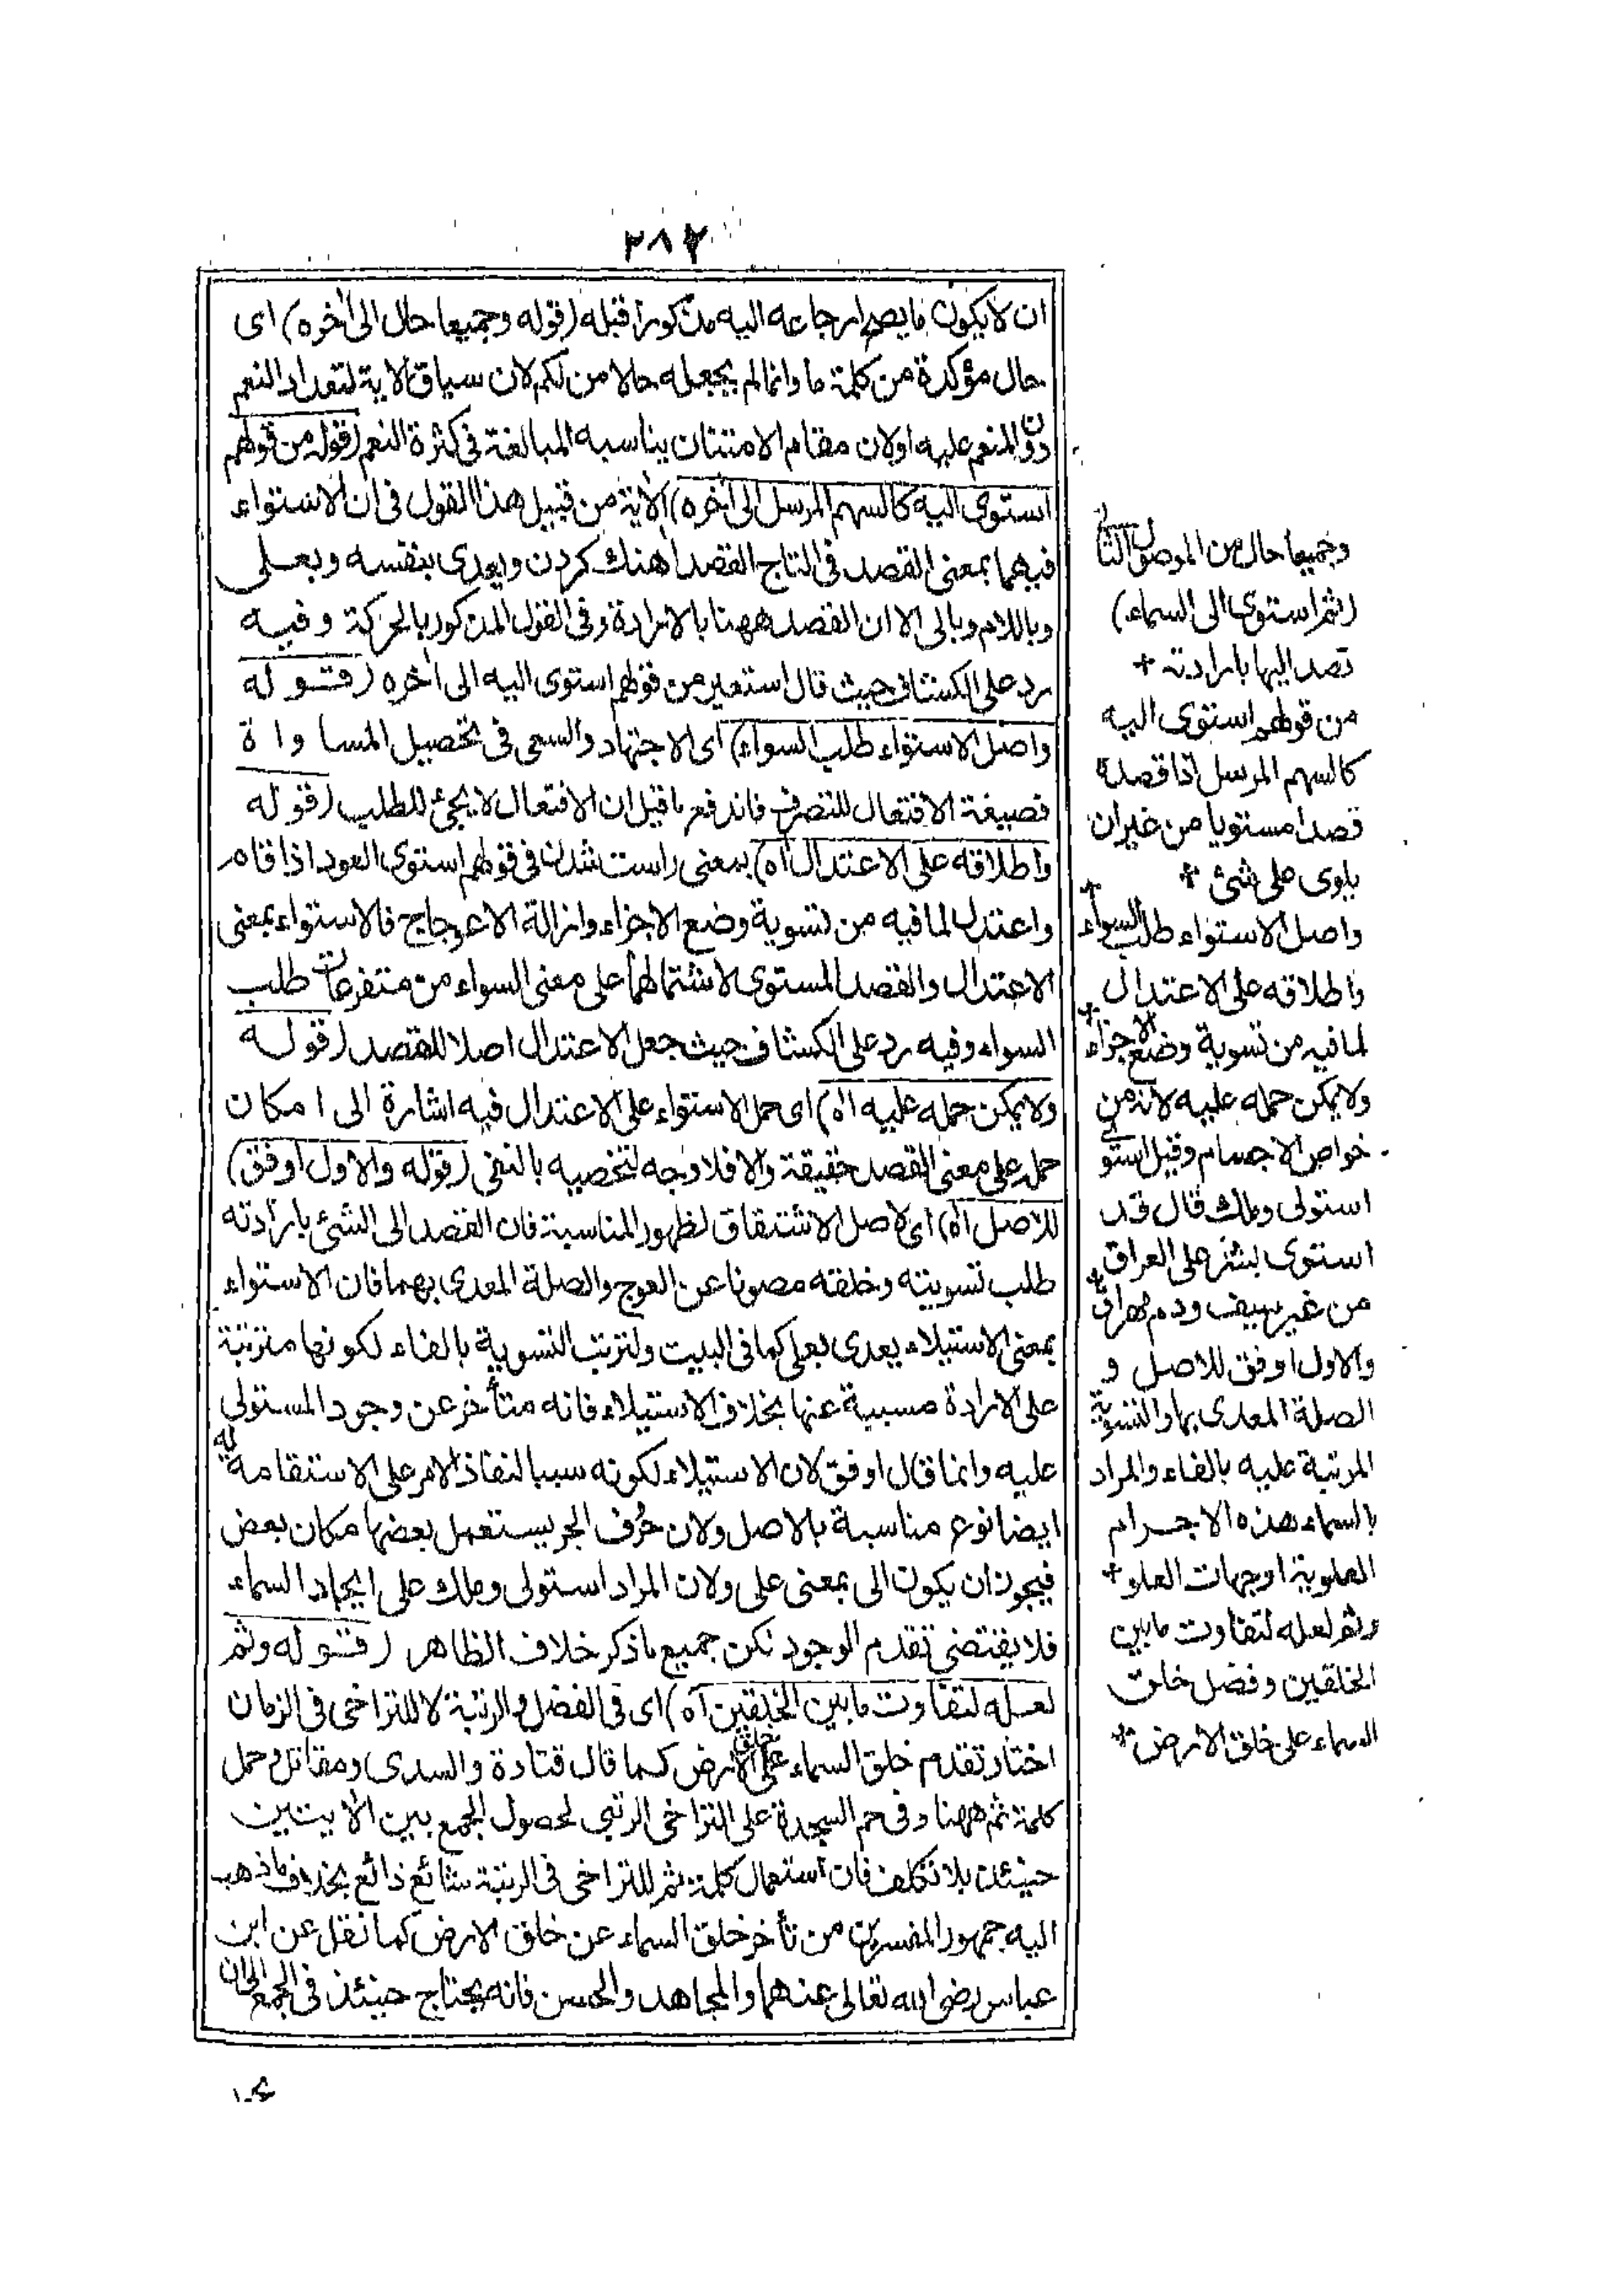 ٢٨٢
ان لا يكون ما يصح ارجاعه اليه مذكورا قبله (قوله وجميعا حال الى أخره) اى
حال مؤكدة من كلمة ما وانما لم يجعله حالا من لكم لان سياق الاية لتعداد النعم
دون المنعم عليه اولان مقام الامتنان يناسبه المبالغة فى كثرة النعم (قوله من قولهم
استوى اليه كالسهم المرسل الى أخره) الاية من قبيل هذا القول فى ان الاستواء
فيهما بمعنى القصد فى التاج القصد اهنك كردن ويعدى بنفسه وبعلى
وباللام وبالى الا ان القصد ههنا بالارادة وفى القول المذكور بالحركة وفيه
رد على الكشاف حيث قال استعير من قولهم استوى اليه الى أخره (قوله
واصل الاستواء طلب السواء) اى الاجتهاد والسعى فى تحصيل المساواة
فصيغة الافتعال للتصرف فاندفع ما قيل ان الافتعال لا يجئ للطلب (قوله
واطلاقه على الاعتدال اه) بمعنى راست شدن فى قولهم استوى العود اذا قام
واعتدل لما فيه من تسوية وضع الاجزاء وازالة الاعوجاج فالاستواء بمعنى
الاعتدال والقصد المستوى لاشتمالهما على معنى السواء من متفرعات طلب
السواء وفيه رد على الكشاف حيث جعل الاعتدال اصلا للقصد (قوله
ولا يمكن حمله عليه اه) اى حمل الاستواء على الاعتدال فيه اشارة الى امكان
حمله على معنى القصد حقيقة والا فلا وجه لتخصيه بالنفى (قوله والاول اوفق)
للاصل اه) اى لاصل الاشتقاق لظهور المناسبة فان القصد الى الشئ بارادته
طلب تسويته وخلقه مصونا عن العوج والصلة المعدى بهما فان الاستواء
بمعنى الاستيلاء يعدى بعلى كما فى البيت ولترتب التسوية بالفاء لكونها مترتبة
على الارادة مسببة عنها بخلاف الاستيلاء فانه متأخر عن وجود المستولى
عليه وانما قال اوفق لان الاستيلاء لكونه سببا لنفاذ الامر على الاستقامة له
ايضا نوع مناسبة بالاصل ولان حرف الجر يستعمل بعضها مكان بعض
فيجوز ان يكون الى بمعنى على ولان المراد استولى وملك على ايجاد السماء
فلا يقتضى تقدم الوجود لكن جميع ما ذكر خلاف الظاهر (قوله وثم
لعله لتفاوت ما بين الخلقين اه) اى فى الفضل والرتبة لا للتراخى فى الزمان
اختار تقدم خلق السماء على خلق الارض كما قال قتادة والسدى ومقاتل وحمل
كلمة ثم ههنا وفى حم السجدة على التراخى الرتبى لحصول الجمع بين الايتين
حينئذ بلا تكلف فان استعمال كلمة ثم للتراخى فى الرتبة شائع ذائع بخلاف ما ذهب
اليه جمهور المفسرين من تأخر خلق السماء عن خلق الارض كما نقل عن ابن
عباس رضى الله تعالى عنهما والمجاهد والحسن فانه يحتاج حينئذ فى الجمع الى ان
وجميعا حال من الموصول الثانى
(ثم استوى الى السماء)
قصد اليها بارادته +
من قولهم استوى اليه
كالسهم المرسل اذا قصده
قصدا مستويا من غير ان
يلوى على شئ +
واصل الاستواء طلب السواء +
واطلاقه على الاعتدال
لما فيه من تسوية وضع الاجزاء +
ولا يمكن حمله عليه لانه من
خواص الاجسام وقيل استوى
استولى وملك قال قد
استوى بشر على العراق
من غير سيف ودم مهراق +
والاول اوفق للاصل و
الصلة المعدى بها والتسوية
المرتبة عليه بالفاء والمراد
بالسماء هذه الاجرام
العلوية او جهات العلو +
وثم لعله لتفاوت ما بين
الخلقين وفضل خلق
السماء على خلق الارض +